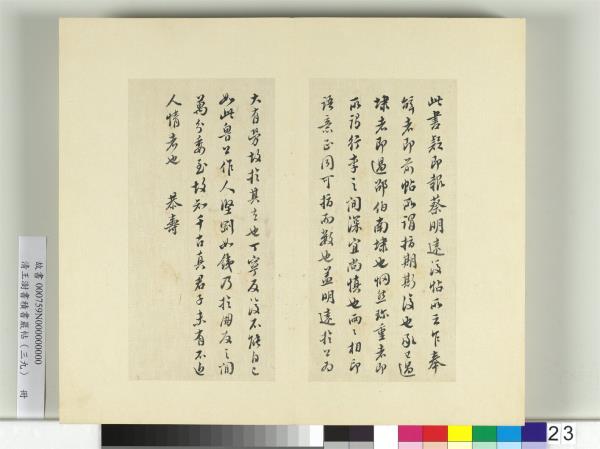 此書疑即報蔡明遠後帖所云乍奉
辭者即前帖所謂指期斯復也承已過
埭者即過邵伯南埭也惘然珍重者即
所謂行李之間深宜尚慎也兩之相印
語意正同可指而數也蓋明遠於公為
大有勞故於其之也丁寧反復不能自已
如此魯公作人堅剛如鐵乃於朋友之間
萬分委至故知千古真君子未有不近
人情者也 恭壽
故書000759N000000000
清王澍書積書巖帖(三九) 冊
23